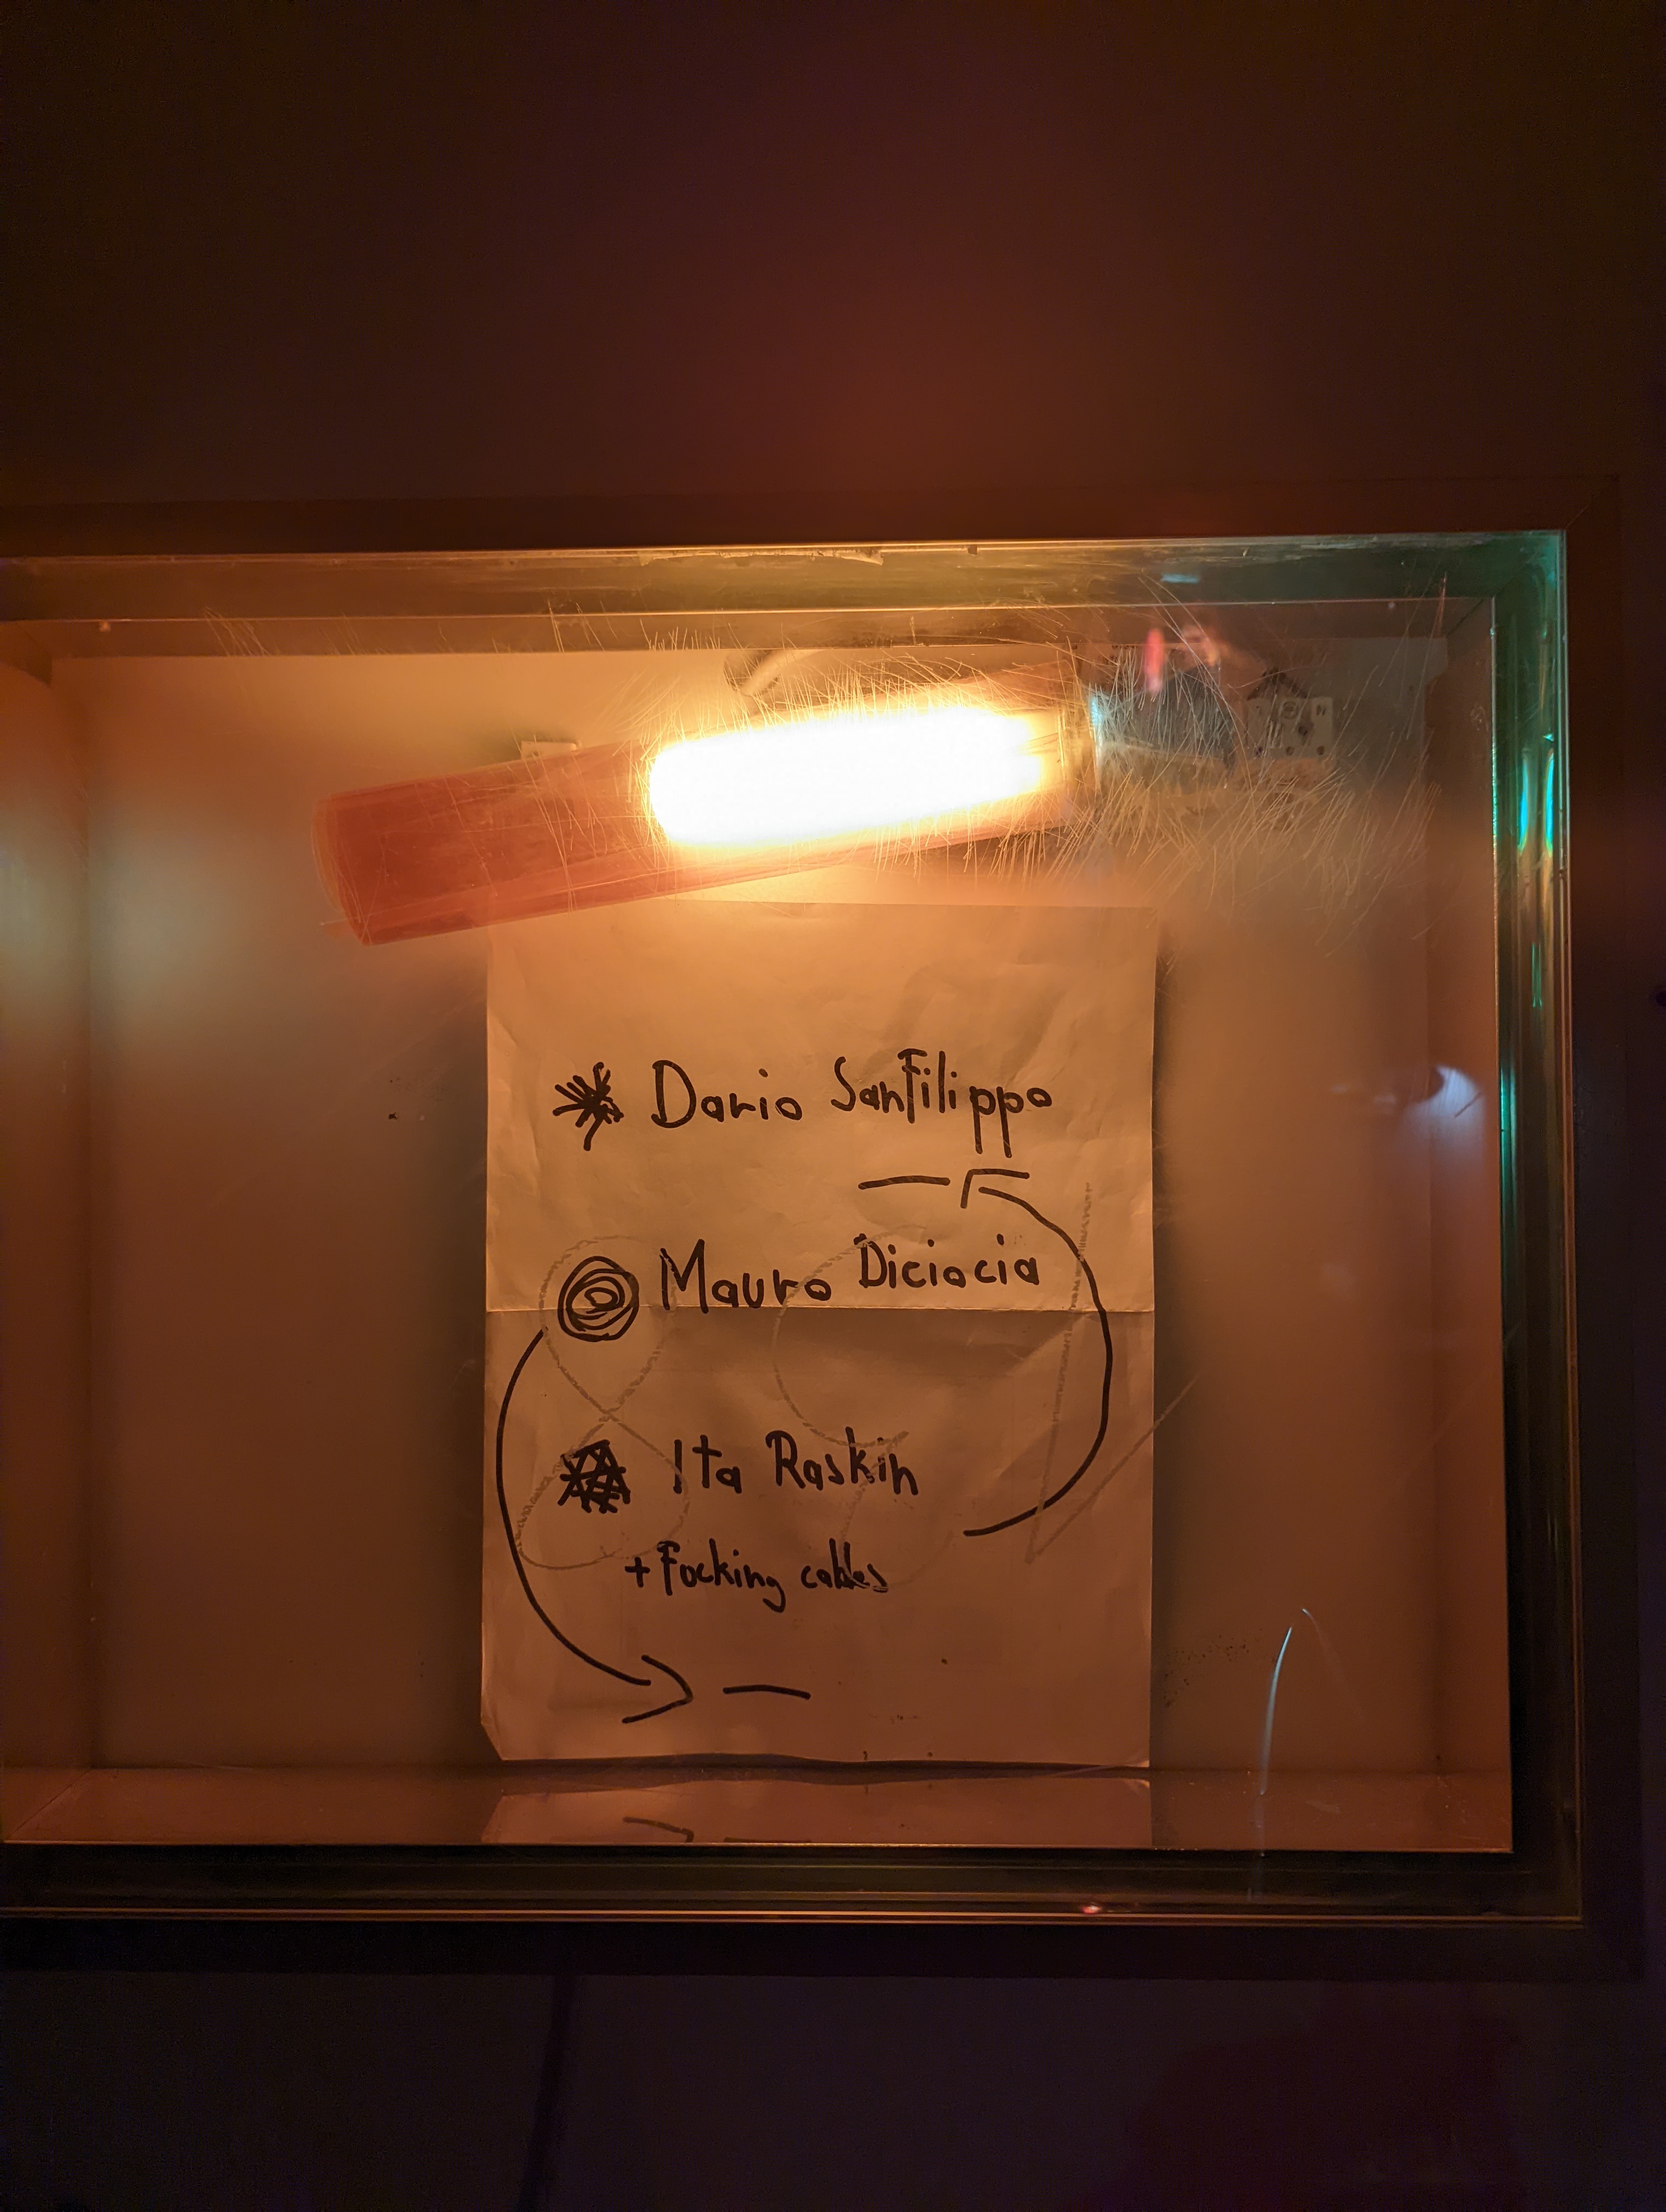 Dario Sanfilippo
Mauro Diciocia
Ita Raskin
+ Focking cables